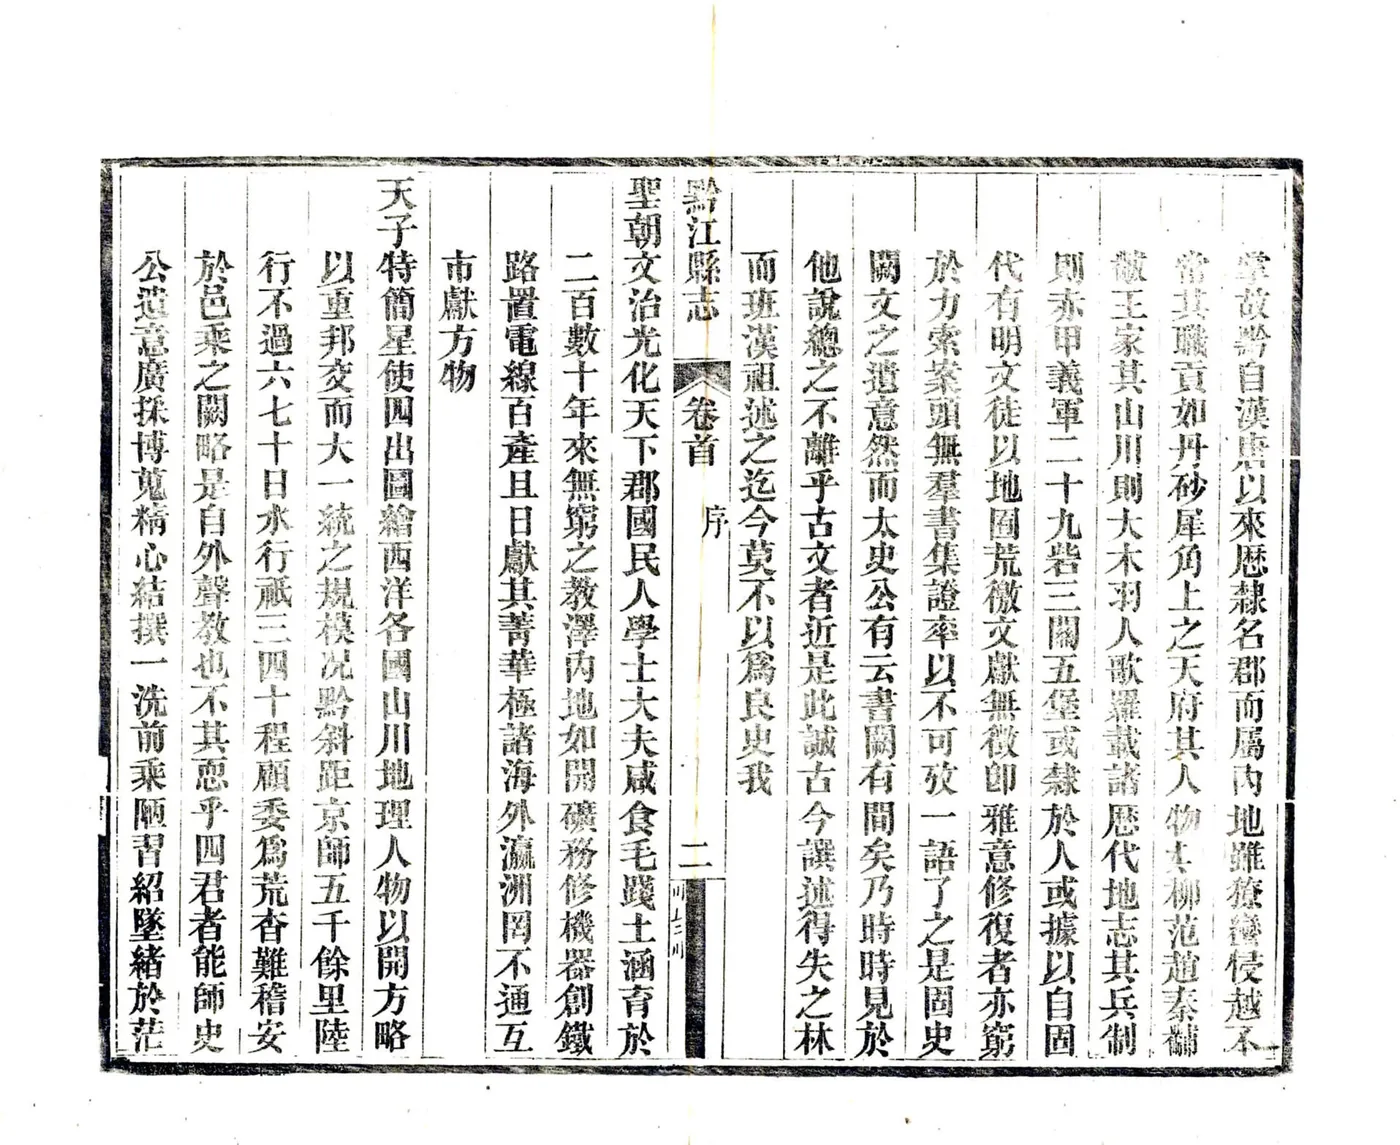 掌故黔自漢唐以來歷隸名郡而屬內地雖獠蠻侵越不
常其職貢如丹砂犀角上之天府其人物其柳范趙秦黼
黻王家其山川則大木羽人歌羅載諸歷代地志其兵制
則赤甲義軍二十九砦三關五堡或隸於人或據以自固
代有明文徒以地固荒徼文獻無徵卽雅意修復者亦窮
於力索案頭無羣書集證率以不可攷一語了之是固史
闕文之遺意然而太史公有云書闕有間矣乃時時見於
他說總之不離乎古文者近是此誠古今譔述得失之林
而班漢祖述之迄今莫不以爲良史我
黔江縣志
卷首
序
二
聖朝文治光化天下郡國民人學士大夫咸食毛踐土涵育於
二百數十年來無窮之教澤內地如開礦務修機器創鐵
路置電線百產且日獻其菁華極諸海外瀛洲罔不通互
市獻方物
天子特簡星使四出圖繪西洋各國山川地理人物以開方略
以重邦交而大一統之規模况黔斜距京師五千餘里陸
行不過六七十日水行祇三四十程顧委爲荒杳難稽安
於邑乘之闕略是自外聲教也不其恧乎四君者能師史
公遺意廣採博蒐精心結撰一洗前乘陋習紹墜緒於茫